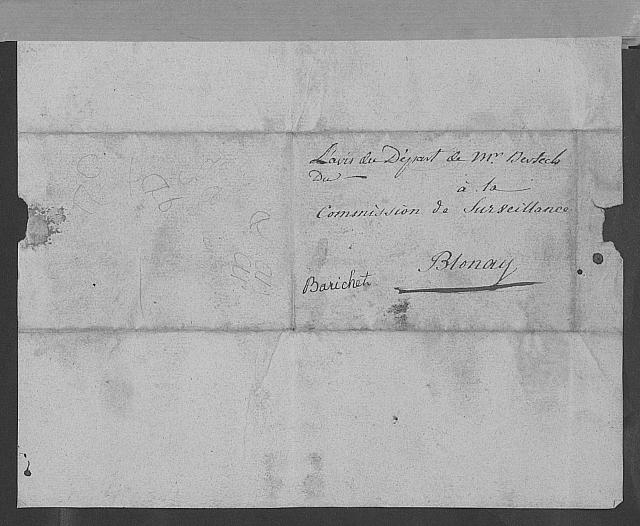 L'avis du Départ de Mr. Bertech
Du —
à la
Commission de Surveillance
Blonay
Barichet